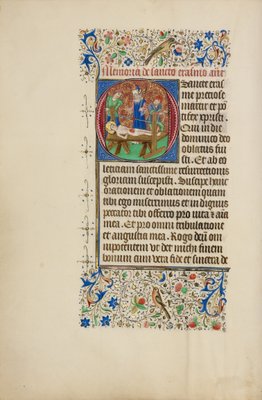 Memoria de sancto erasmo añe
Sancte eras
me preciose
martir et pō
tifex xp̄i qui
in die
dominico deo
oblatus fui
sti. Et ab eo
leticiam sanctissime resurrectionis
gloriam suscepisti. Suscipe hanc
orationem et oblationem quam
tibi ego miserrimus et indignus
peccator tibi offero pro vita et aīa
mea. Et pro omni tribulatione
et angustia mea. Rogo deū om
nipotentem vt det michi finem
bonum cum vera fide et sincera de